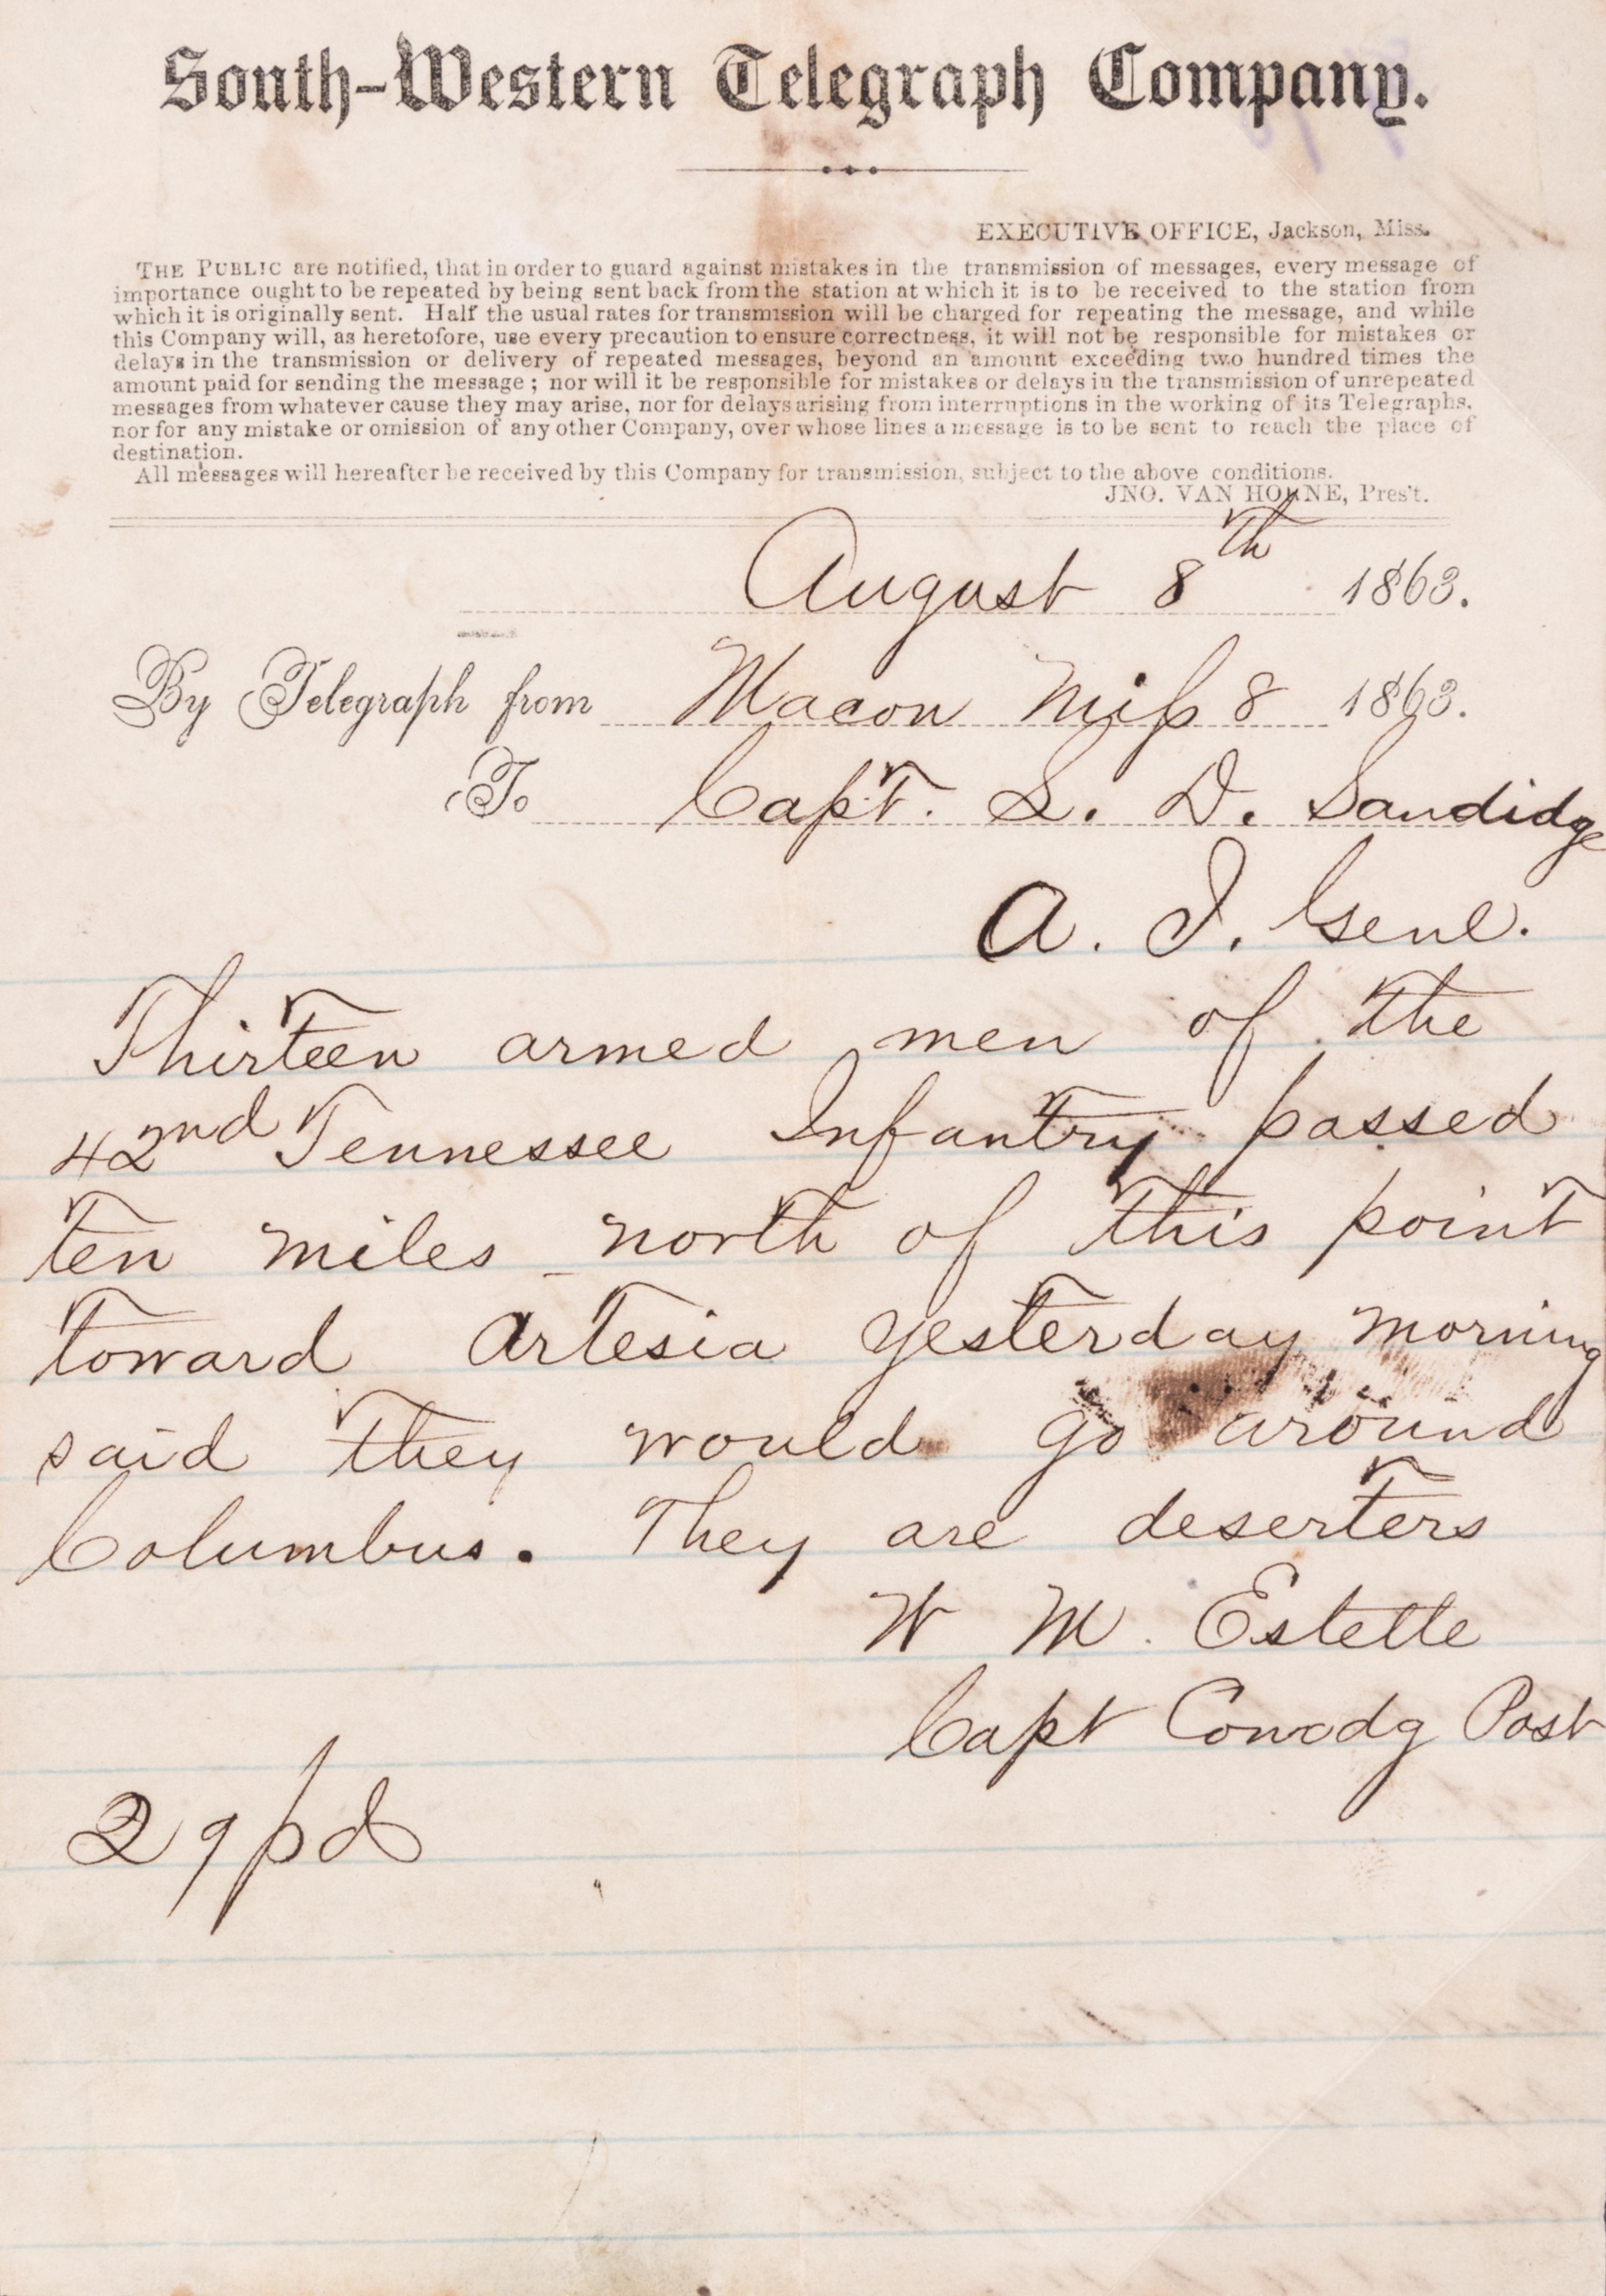 South-Western Telegraph Company.
EXECUTIVE OFFICE, Jackson, Miss.
THE PUBLIC are notified, that in order to guard against mistakes in the transmission of messages, every message of
importance ought to be repeated by being sent back from the station at which it is to be received to the station from
which it is originally sent. Half the usual rates for transmission will be charged for repeating the message, and while
this Company will, as heretofore, use every precaution to ensure correctness, it will not be responsible for mistakes or
delays in the transmission or delivery of repeated messages, beyond an amount exceeding two hundred times the
amount paid for sending the message; nor will it be responsible for mistakes or delays in the transmission of unrepeated
messages from whatever cause they may arise, nor for delays arising from interruptions in the working of its Telegraphs,
nor for any mistake or omission of any other Company, over whose lines a message is to be sent to reach the place of
destination.
All messages will hereafter be received by this Company for transmission, subject to the above conditions.
JNO. VAN HORNE, Pres't.
August 8th 1863.
By Telegraph from Macon Miss 8 1863.
To Capt. L. D. Sandidge
A. I. Genl.
Thirteen armed men of the
42nd Tennessee Infantry passed
ten miles north of this point
toward Artesia yesterday morning
said they would go around
Columbus. They are deserters
W M. Estelle
Capt Comdg Post
29 pd